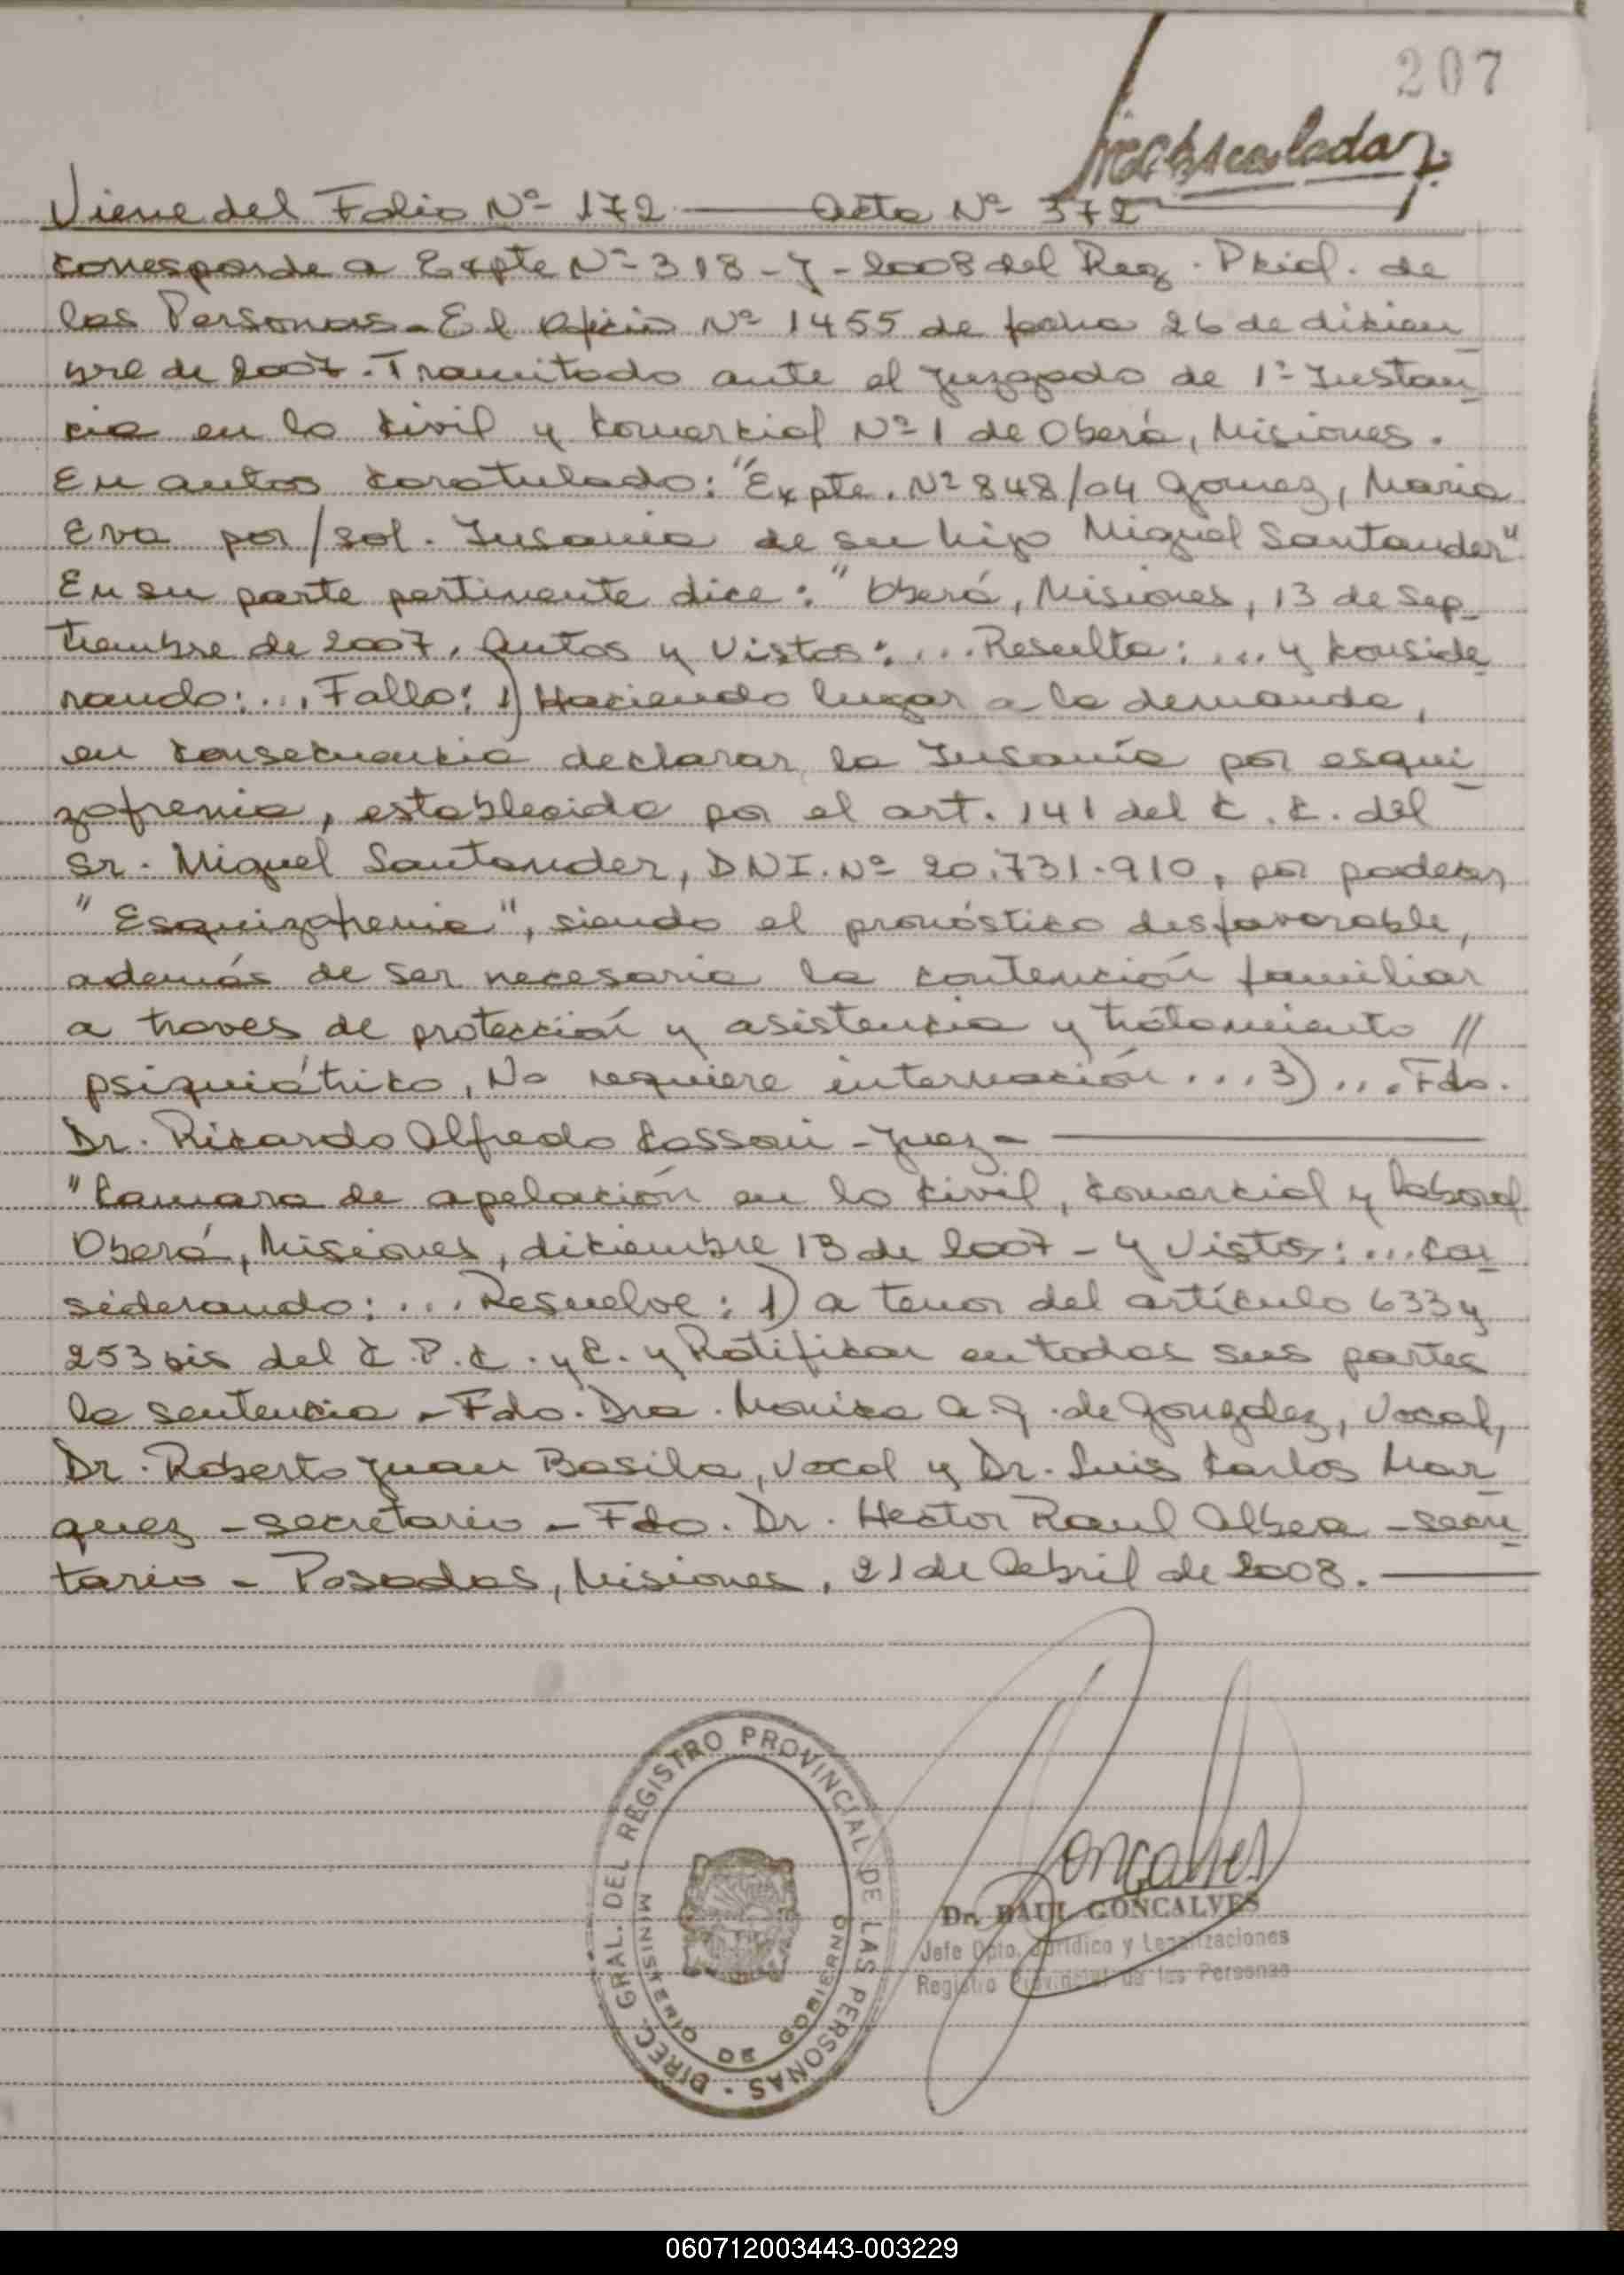 207
Viene del Folio Nº 172 — Acta Nº 372
corresponde a Expte Nº 318-J-2008 del Reg. Pcial. de
las Personas - El Oficio Nº 1455 de fecha 26 de diciem
bre de 2007. Tramitado ante el Juzgado de 1ª Instan
cia en lo Civil y Comercial Nº 1 de Oberá, Misiones.
En autos caratulado: "Expte. Nº 848/04 Gomez, Maria
Eva por/sol. Insania de su hijo Miguel Santander"
En su parte pertinente dice: "Oberá, Misiones, 13 de Sep
tiembre de 2007. Autos y Vistos: ... Resulta: ... y Conside
rando: ... Fallo: 1) Haciendo lugar a la demanda,
en consecuencia declarar la Insanía por esqui
zofrenia, establecido por el art. 141 del C.C. del
Sr. Miguel Santander, DNI. Nº 20.731.910, por padecer
"Esquizofrenia", siendo el pronóstico desfavorable,
además de ser necesaria la contención familiar
a traves de protección y asistencia y tratamiento //
psiquiátrico, No requiere internación ... 3) ... Fdo.
Dr. Ricardo Alfredo Cassoni - Juez -
"Camara de apelación en lo Civil, Comercial y Laboral
Oberá, Misiones, diciembre 13 de 2007 - Y Vistos: ... Con
siderando: ... Resuelve: 1) a tenor del artículo 633 y
253 bis del C.P.C. y C. y Ratificar en todas sus partes
la sentencia - Fdo. Dra. Monica A. G. de Gonzalez, Vocal,
Dr. Roberto Juan Basila, Vocal y Dr. Luis Carlos Mar
quez - secretario - Fdo. Dr. Hector Raul Albea - secre
tario - Posadas, Misiones, 21 de Abril de 2008.
DIREC. GRAL. DEL REGISTRO PROVINCIAL DE LAS PERSONAS -
MINISTERIO DE GOBIERNO
Goncalves
Dr. RAUL GONCALVES
Jefe Dpto. Jurídico y Legalizaciones
Registro Provincial de las Personas
060712003443-003229